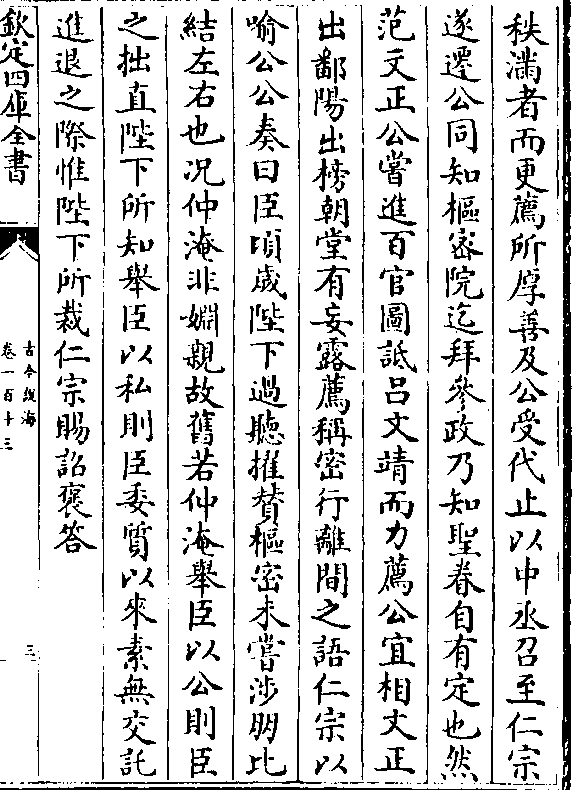 秩滿者而更薦所厚善及公受代止以中丞召至仁宗
遂遷公同知樞密院迄拜參政乃知聖眷自有定也然
范文正公嘗進百官圖詆呂文靖而力薦公宜相文正
出鄱陽出榜朝堂有妄露薦稱密行離間之語仁宗以
喻公公奏曰臣頃歲陛下過聽擢贊樞密未嘗涉朋比
結左右也况仲淹非婣親故舊若仲淹舉臣以公則臣
之拙直陛下所知舉臣以私則臣委質以來素無交託
進退之際惟陛下所裁仁宗賜詔褒答
欽定四庫全書
古今紀海
卷一百十三
三